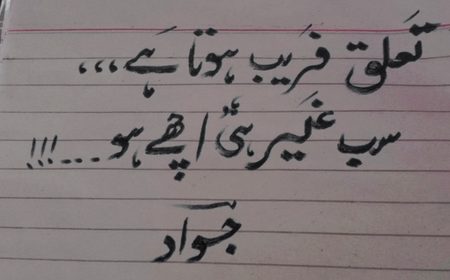 تَعلق فَریب ہوتا ہَے،،،
سب غَیر ہئ اچھے ہو۔۔۔!!!
جواد